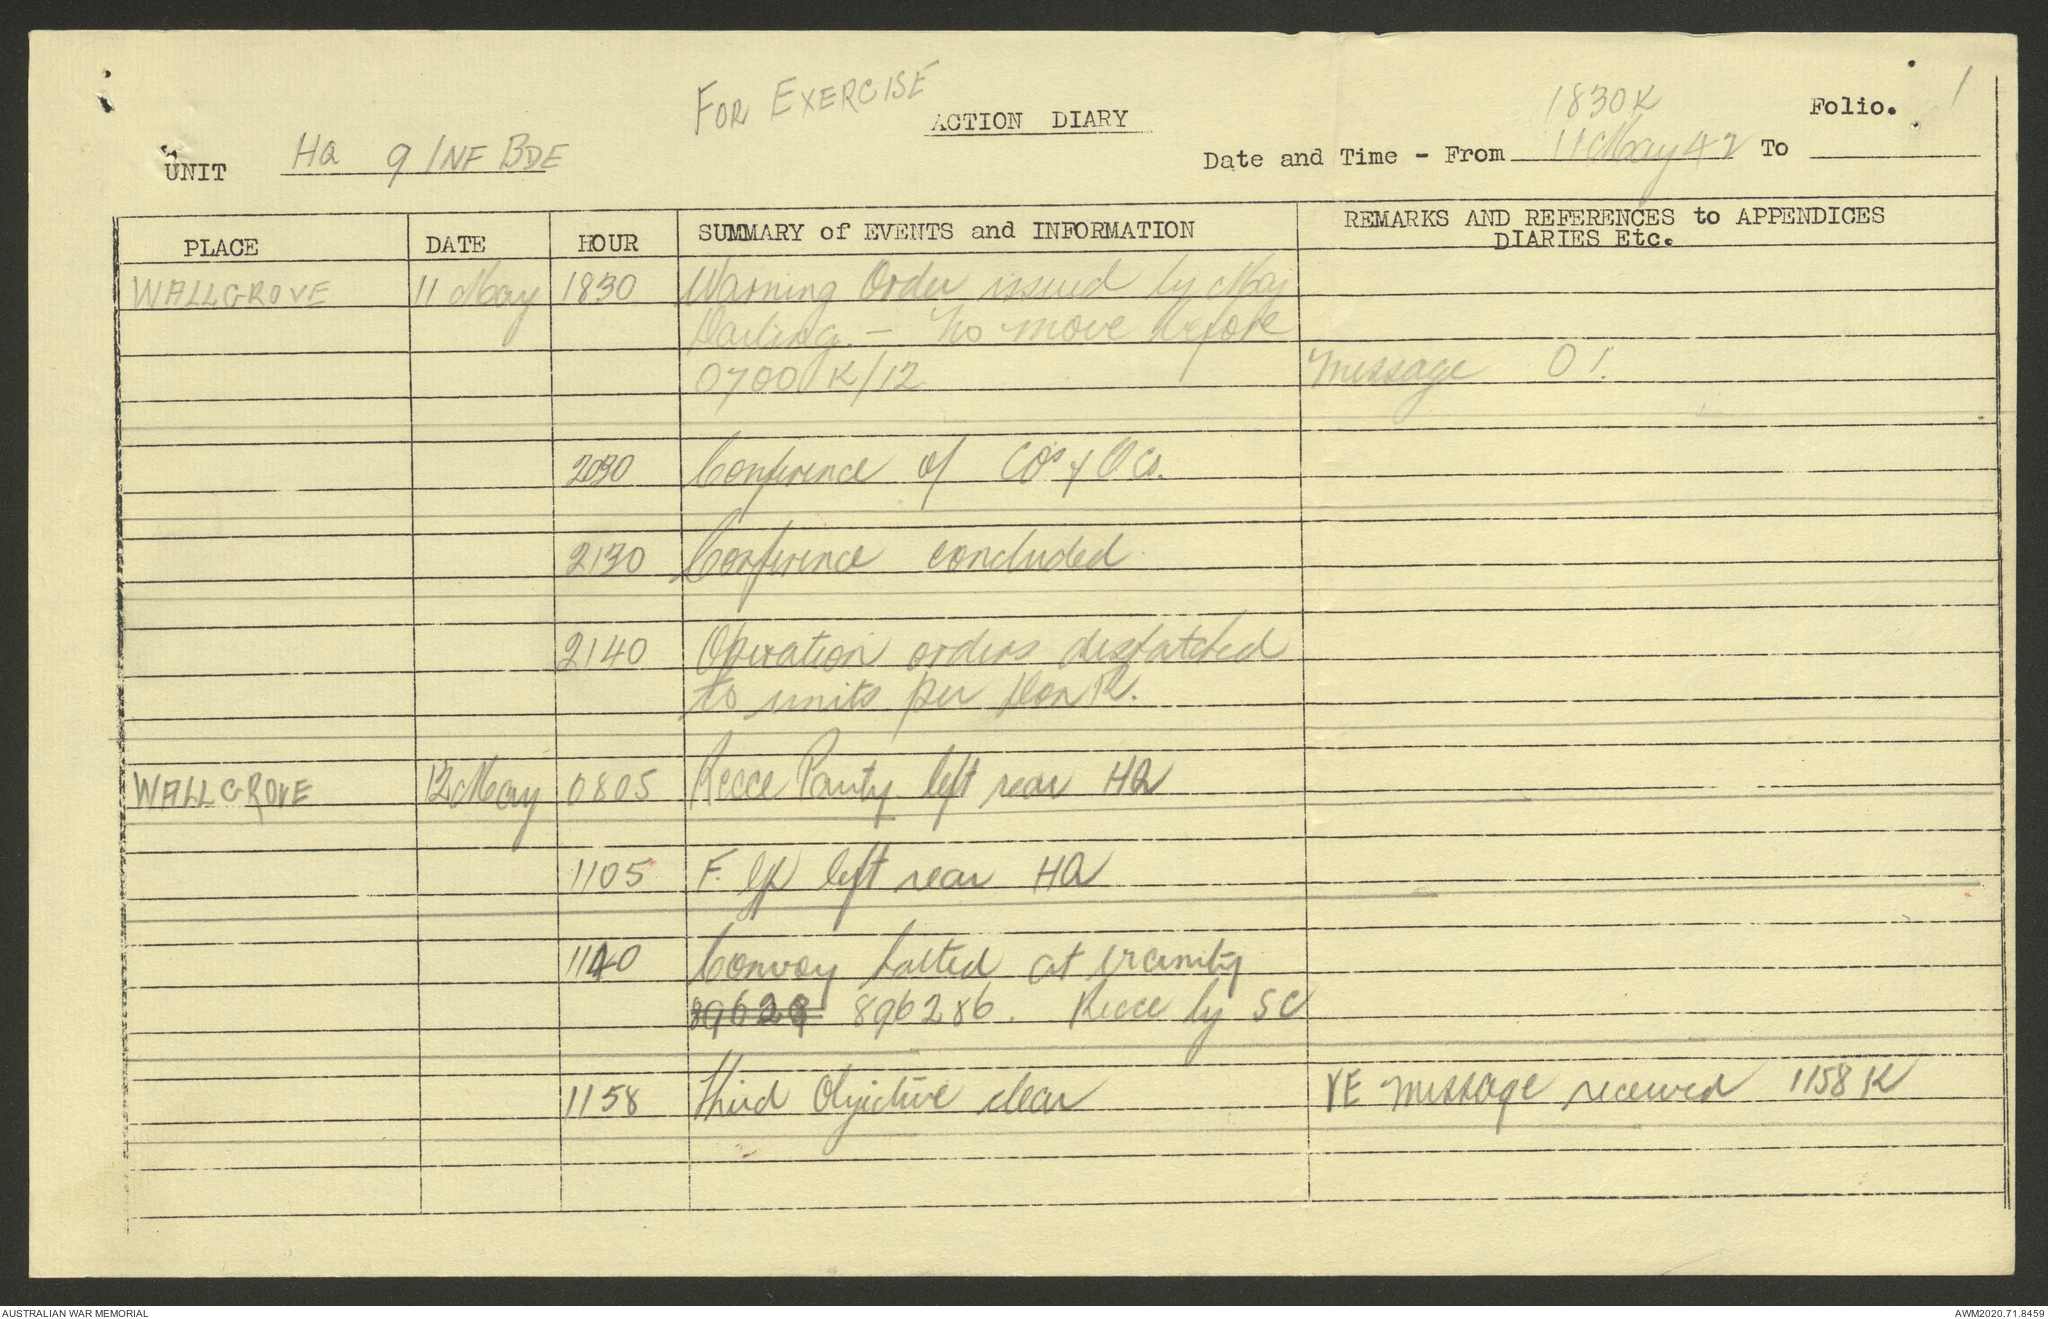 For Exercise
ACTION DIARY
1830K
Folio. 1
UNIT HQ 9 INF BDE
Date and Time - From 11 May 42 To
PLACE DATE HOUR SUMMARY of EVENTS and INFORMATION REMARKS AND REFERENCES to APPENDICES
DIARIES Etc.
WALLGROVE 11 May 1830 Warning Order issued by Maj
Darling. - No move before
0700 K/12 Message 01.
2030 Conference of COs & OCs.
2130 Conference concluded
2140 Operation orders despatched
to units per Don R.
WALLGROVE 12 May 0805 Recce Party left rear HQ
1105 F. Gp left rear HQ
1140 Convoy halted at vicinity
89628 896286. Recce by SC
1158 Third Objective clear VE message received 1158 K
AUSTRALIAN WAR MEMORIAL
AWM2020.71.8459